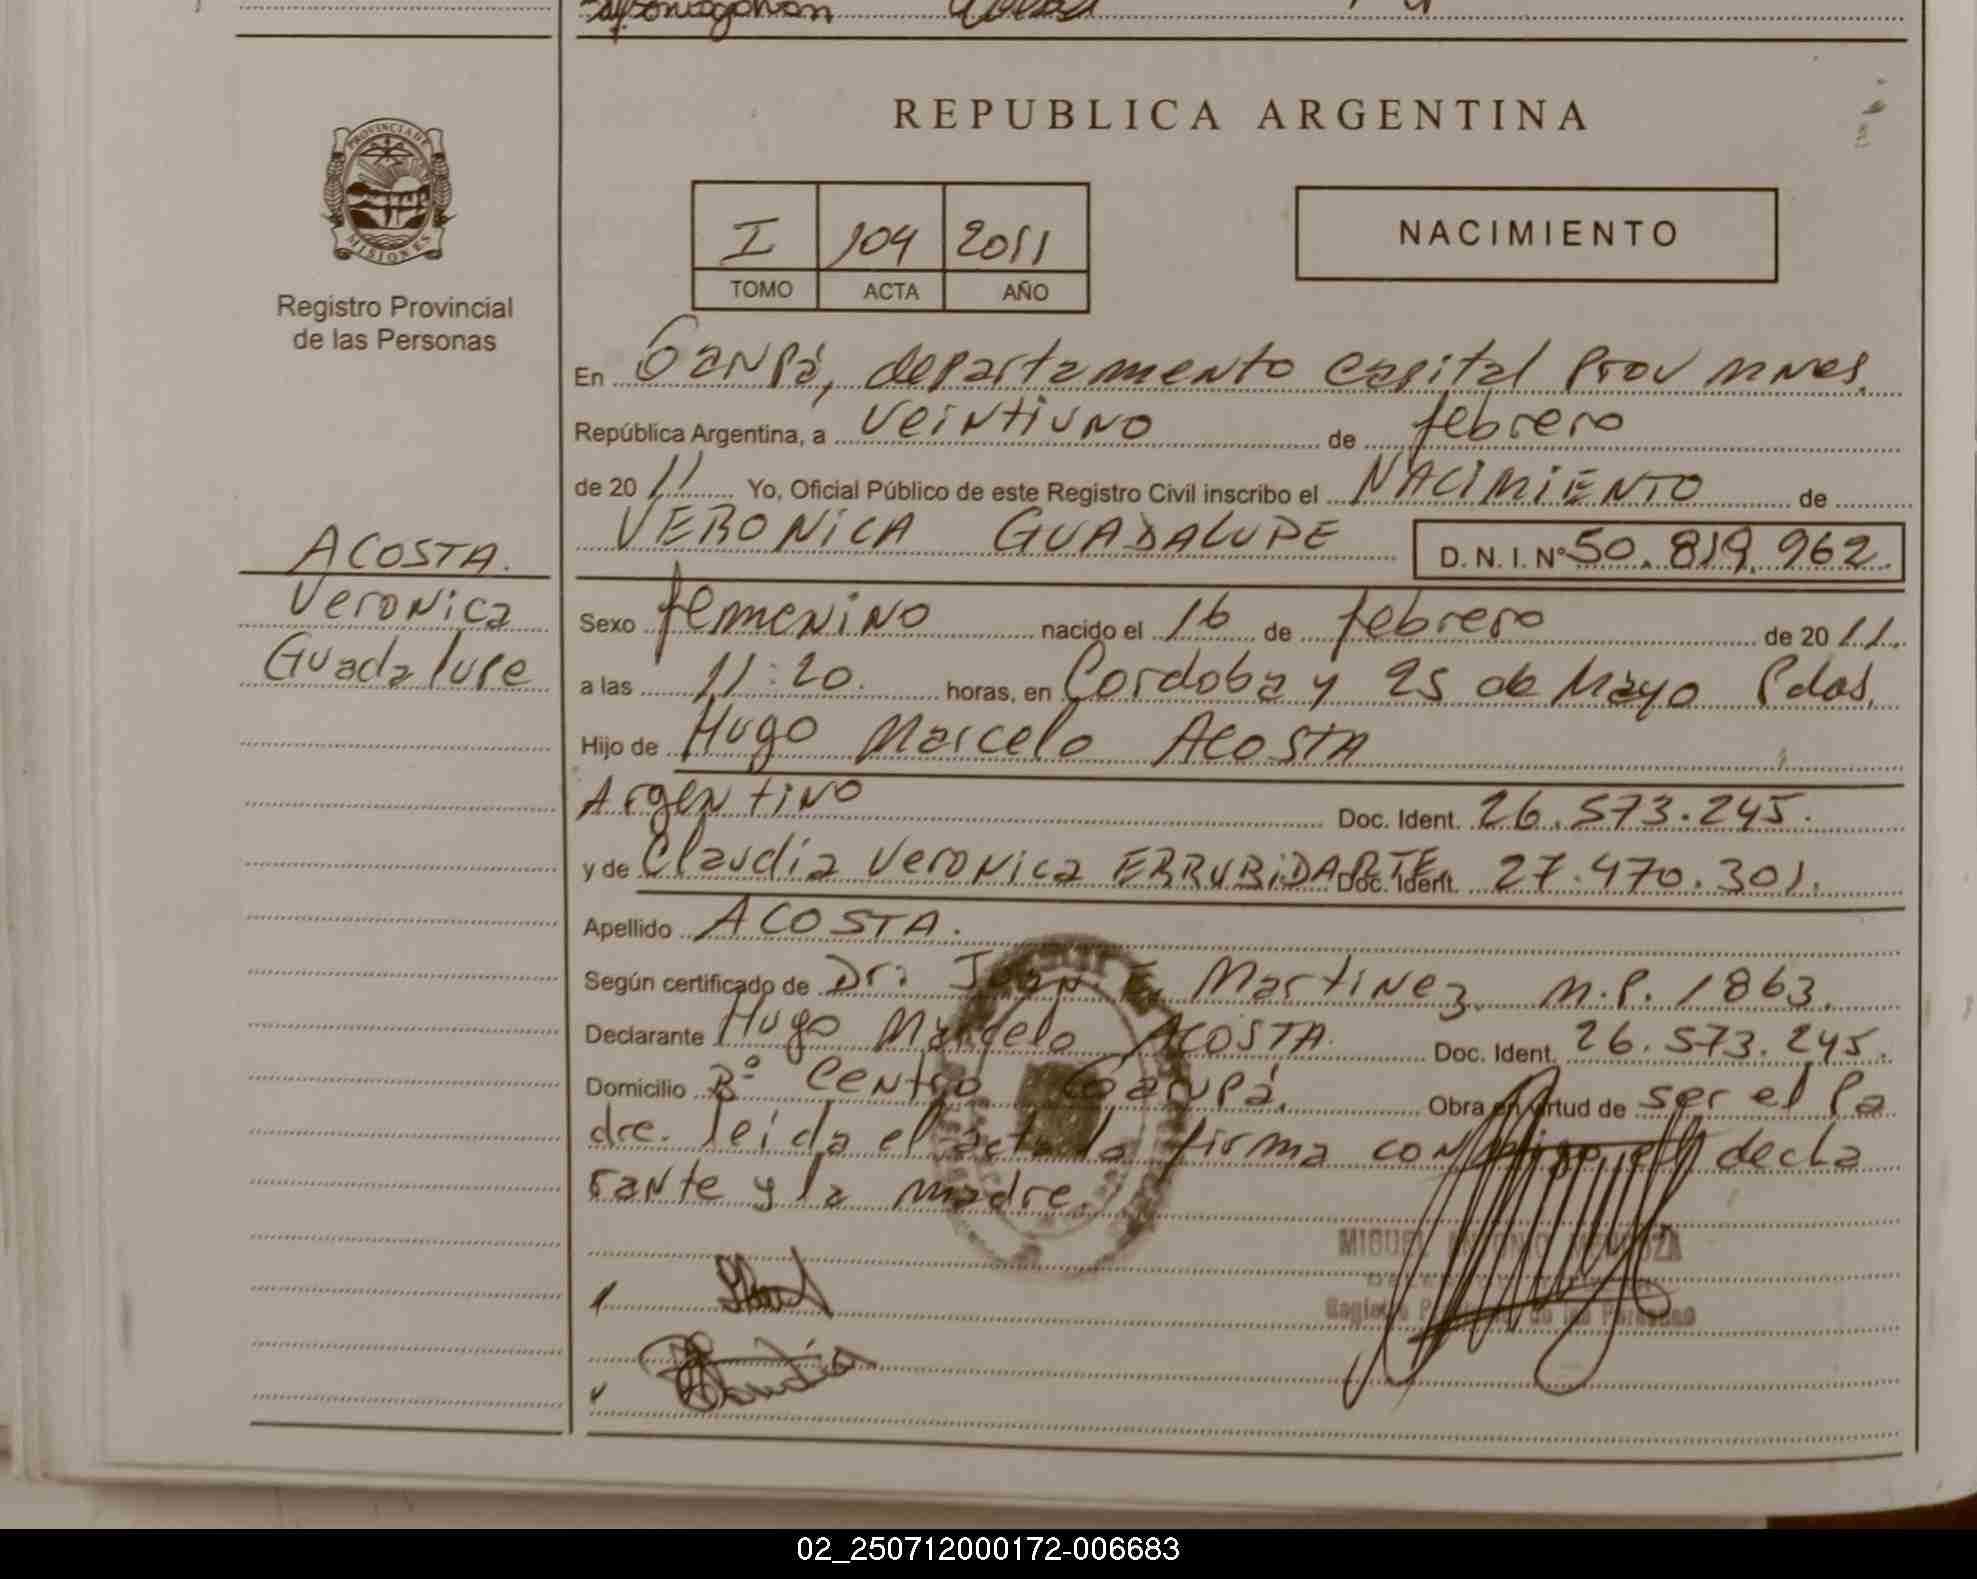 REPUBLICA ARGENTINA
PROVINCIA DE
MISIONES
Registro Provincial
de las Personas
I 104 2011
TOMO ACTA AÑO
NACIMIENTO
En Garupá, departamento capital Prov mnes.
República Argentina, a veintiuno de febrero
de 2011 Yo, Oficial Público de este Registro Civil inscribo el NACIMIENTO de
VERONICA GUADALUPE D. N. I. Nº 50.819.962.
ACOSTA.
Veronica
Guadalupe
Sexo femenino nacido el 16 de febrero de 2011.
a las 11:20. horas, en Cordoba y 25 de Mayo Pdas.
Hijo de Hugo Marcelo ACOSTA
Argentino Doc. Ident. 26.573.245.
y de Claudia Veronica ERRUBIDARTE Doc. Ident. 27.470.301.
Apellido ACOSTA.
Según certificado de Dr: Juan E. Martinez M.P. 1863.
Declarante Hugo Marcelo ACOSTA. Doc. Ident. 26.573.245.
Domicilio Bº Centro Garupá. Obra en virtud de ser el Pa
dre. leida el acta la firma conmigo el decla
rante y la madre.
MIGUEL ANTONIO MENDOZA
Registro Provincial de las Personas
02_250712000172-006683